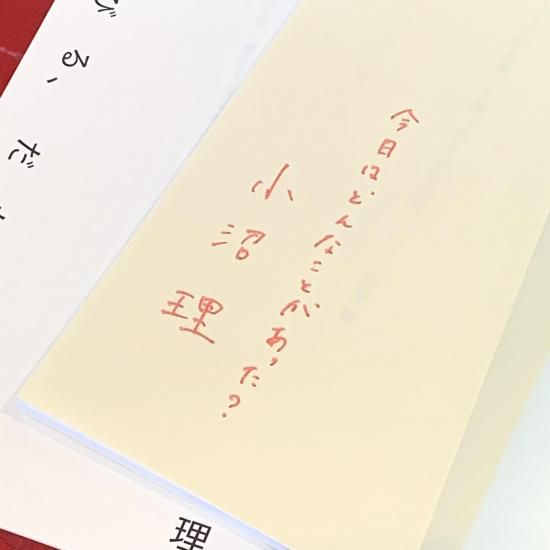 今日はどんなことがあった?
小沼理
びる、だ
理